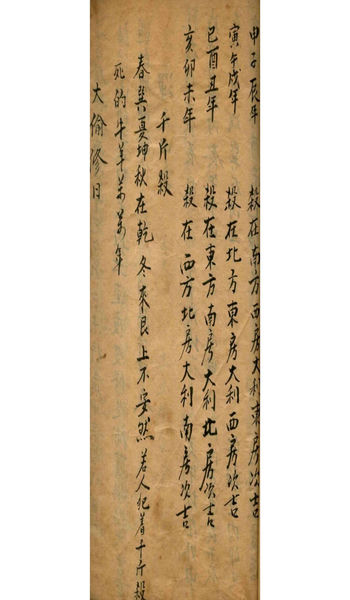 申子辰年 殺在南方西房大利東房次吉
寅午戌年 殺在北方東房大利西房次吉
巳酉丑年 殺在東方南房大利北房次吉
亥卯未年 殺在西方北房大利南房次吉
千斤殺
春巽夏坤秋在乾冬來艮上不安然若人犯着千斤殺
死的牛羊萬萬年
大偷修日